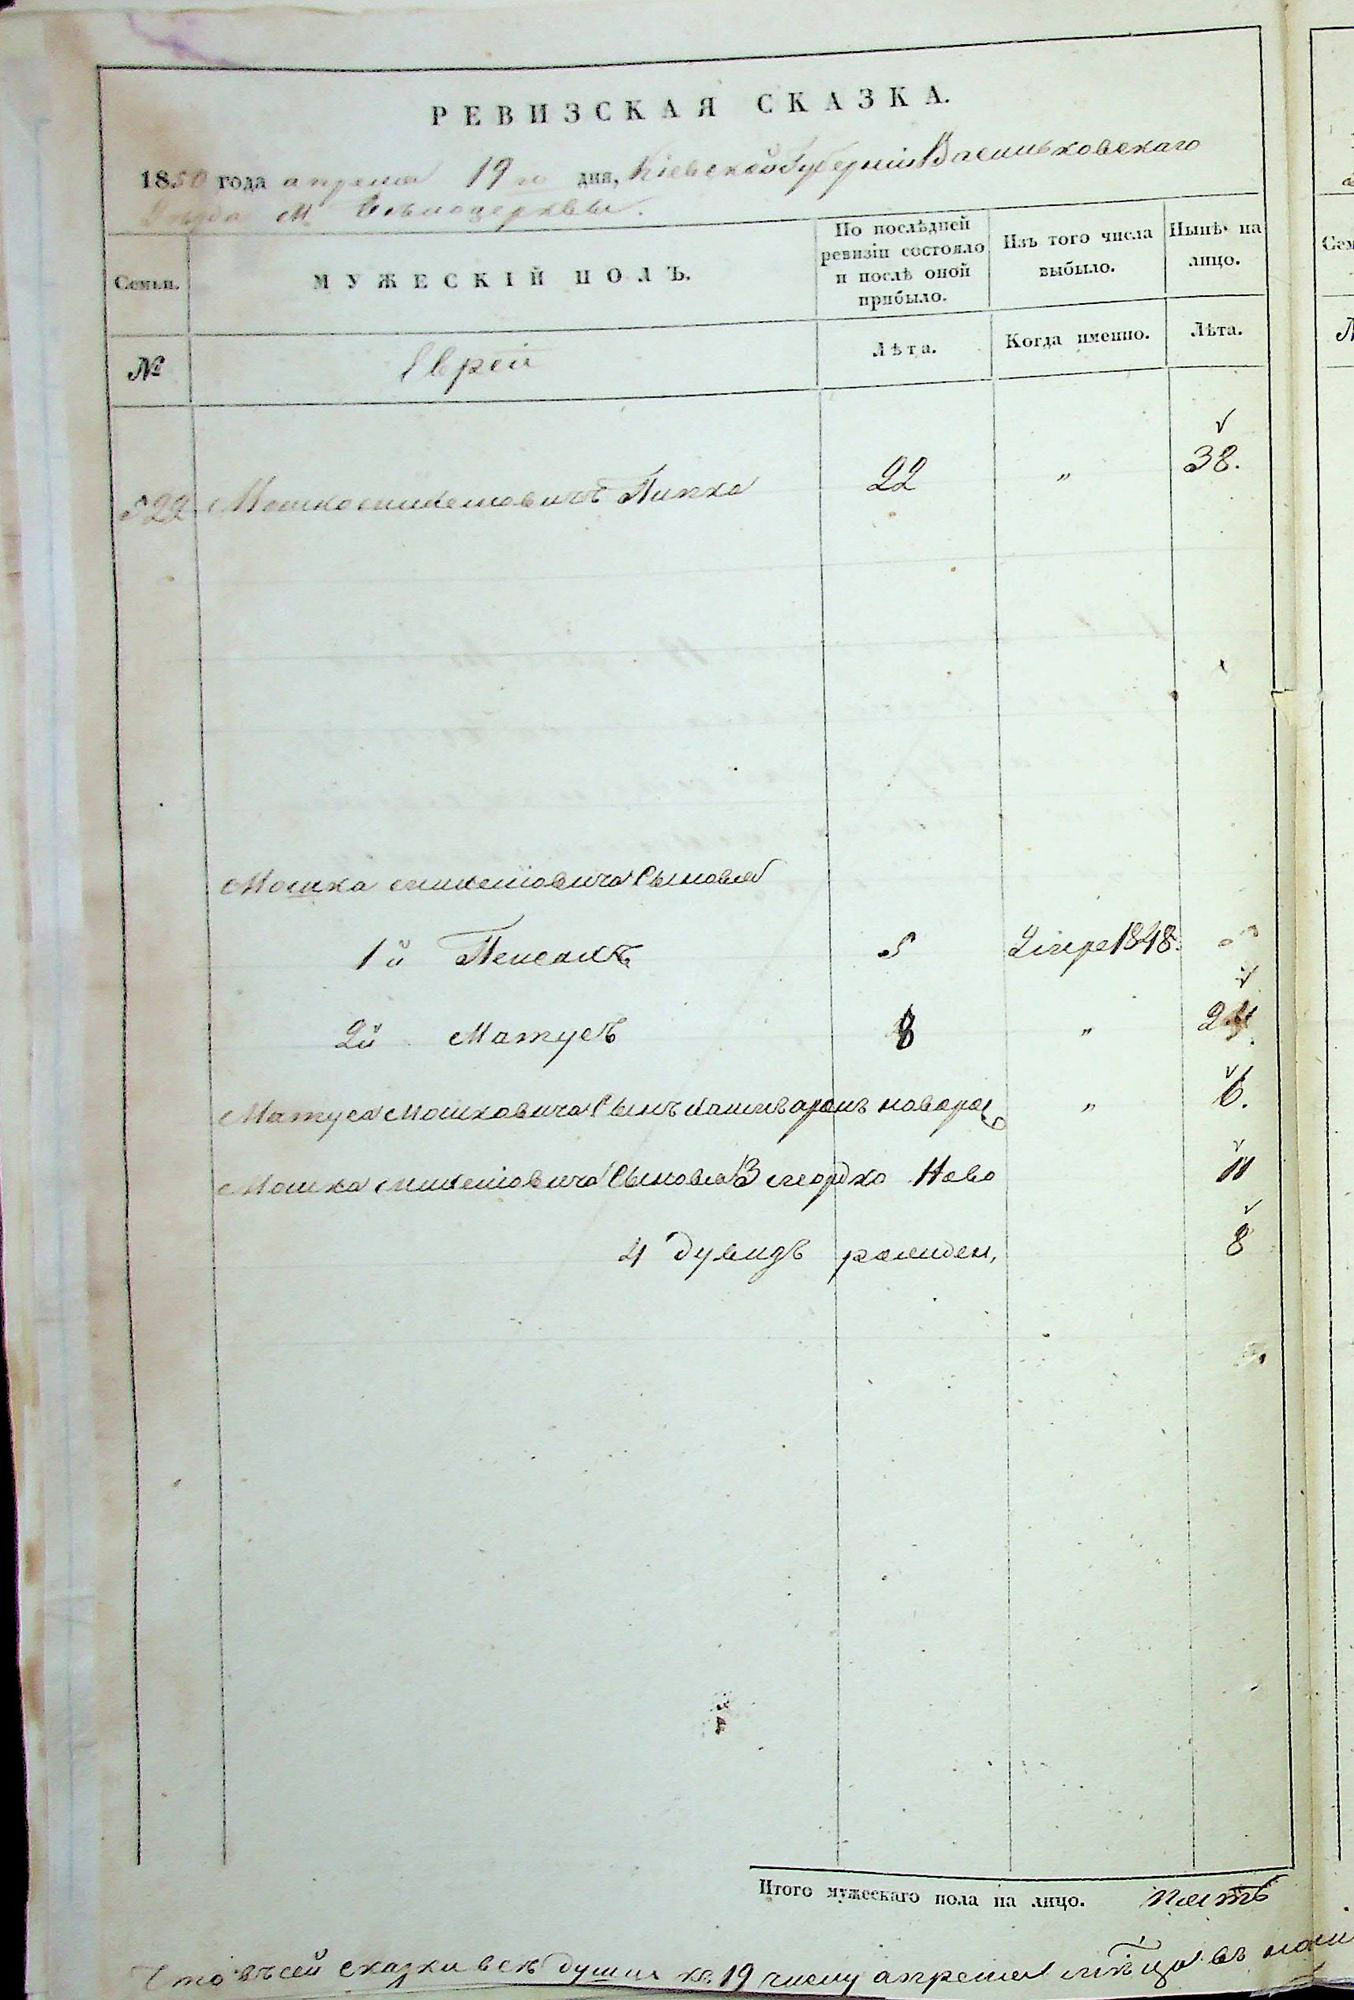 РЕВИЗСКАЯ СКАЗКА.
1850 года апреля 19 го дня, Кіевской Губерніи Васильковскаго
Уезда М. Белоцерквы.
Семьи. МУЖЕСКІЙ ПОЛЪ. По послѣдней ревизіи состояло и послѣ оной прибыло. Изъ того числа выбыло. Нынѣ на лицо.
№ Еврей Лѣта. Когда именно. Лѣта.
522 Мошко Пипко 22 " 38.
Мошка Сыновья
1й Пейсахъ 5 1848
2й Матусъ 8 " 24.
Матуса Мошковича Сынъ новорож " 6.
Мошка Сыновья 3 Мордко Ново 11
4 Дувидъ рожден, 8
Итого мужескаго пола на лицо. пять
Что въ сей сказки все души къ 19 числу апреля мѣца въ